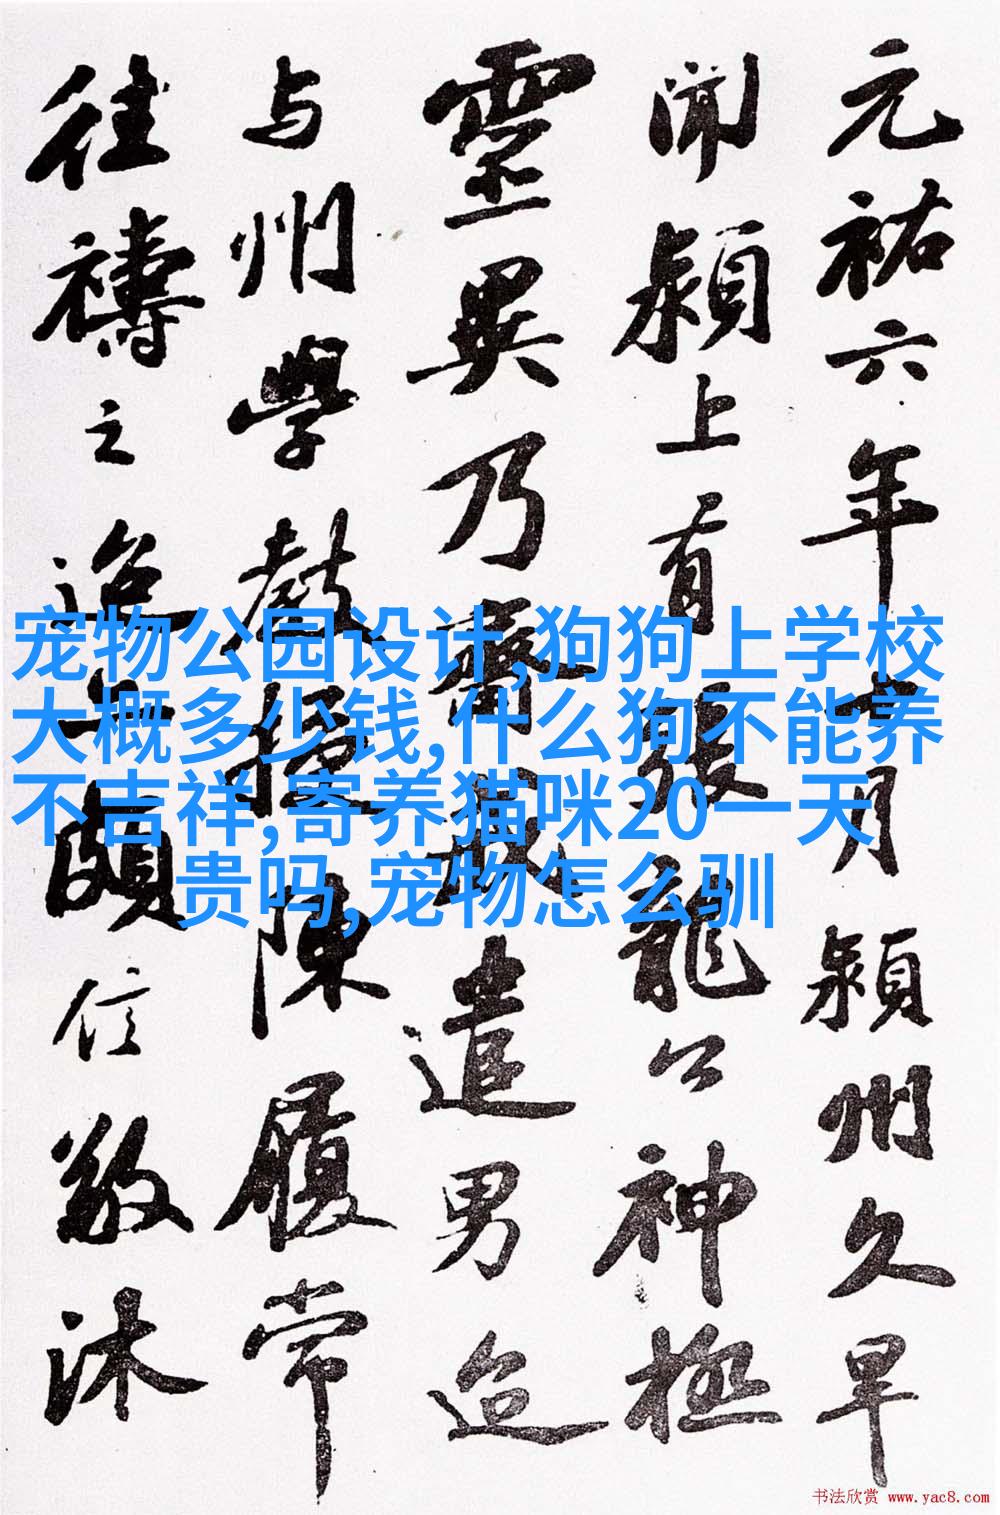 元祐六年十月潁州久旱
聞潁上有張龍公神極
靈異乃齋戒遣男迨
与州學教授陳履常
往禱之迨亦頗信敬沐
宠物公园设计,狗狗上学校
大概多少钱,什么狗不能养
不吉祥,寄养猫咪20一天
贵吗,宠物怎么驯
书法欣赏 www.yac8.com